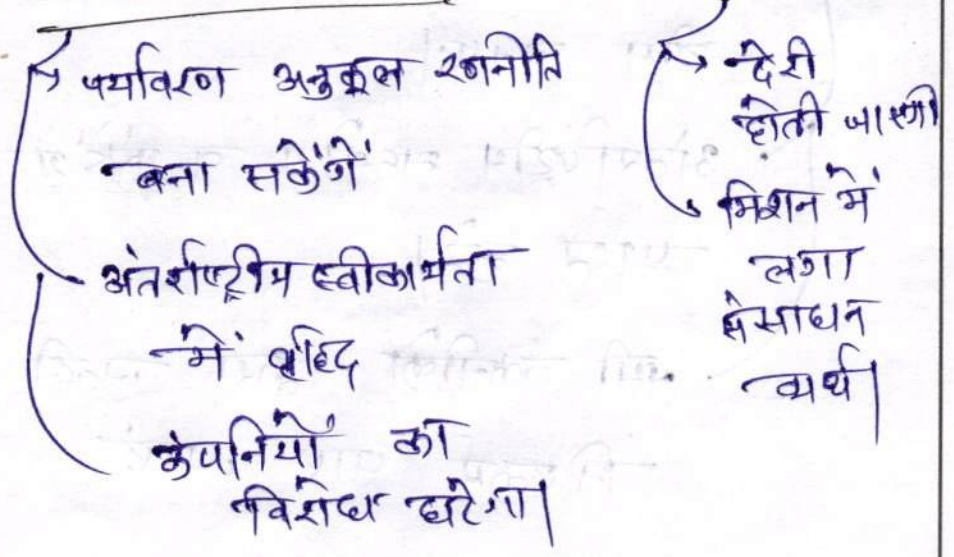 पर्यावरण अनुकूल रणनीति
बना सकेंगें
अंतर्राष्ट्रीय स्वीकार्यता
में वृद्धि
कंपनियों का
विरोध घटेगा।
देरी
होती जाएगी
मिशन में
लगा
संसाधन
व्यर्थ।